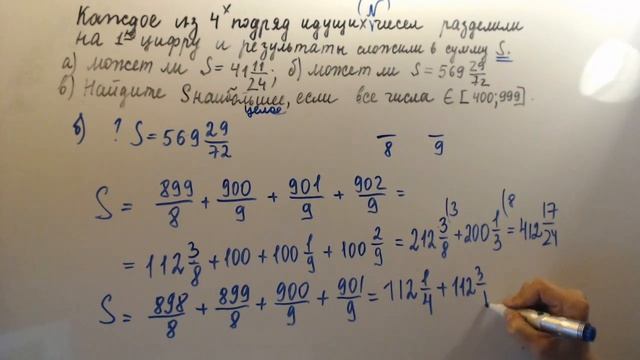 (N)
Каждое из 4х подряд идущих чисел разделили
на 1ую цифру и результаты сложили в сумму S.
а) может ли S = 41 11/24; б) может ли S = 569 29/72
в) Найдите S наибольшее, если все числа ∈ [400; 999].
целое
б) ? S = 569 29/72 — 8 — 9
S = 899/8 + 900/9 + 901/9 + 902/9 =
= 112 3/8 + 100 + 100 1/9 + 100 2/9 = 212 3/8 (3 + 200 1/3 (8 = 412 17/24
S = 898/8 + 899/8 + 900/9 + 901/9 = 112 1/4 + 112 3/